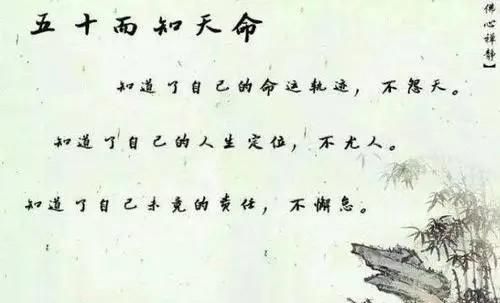 五十而知天命
佛心禅静】
知道了自己的命运轨迹，不怨天。
知道了自己的人生定位，不尤人。
知道了自己未竟的责任，不懈怠。